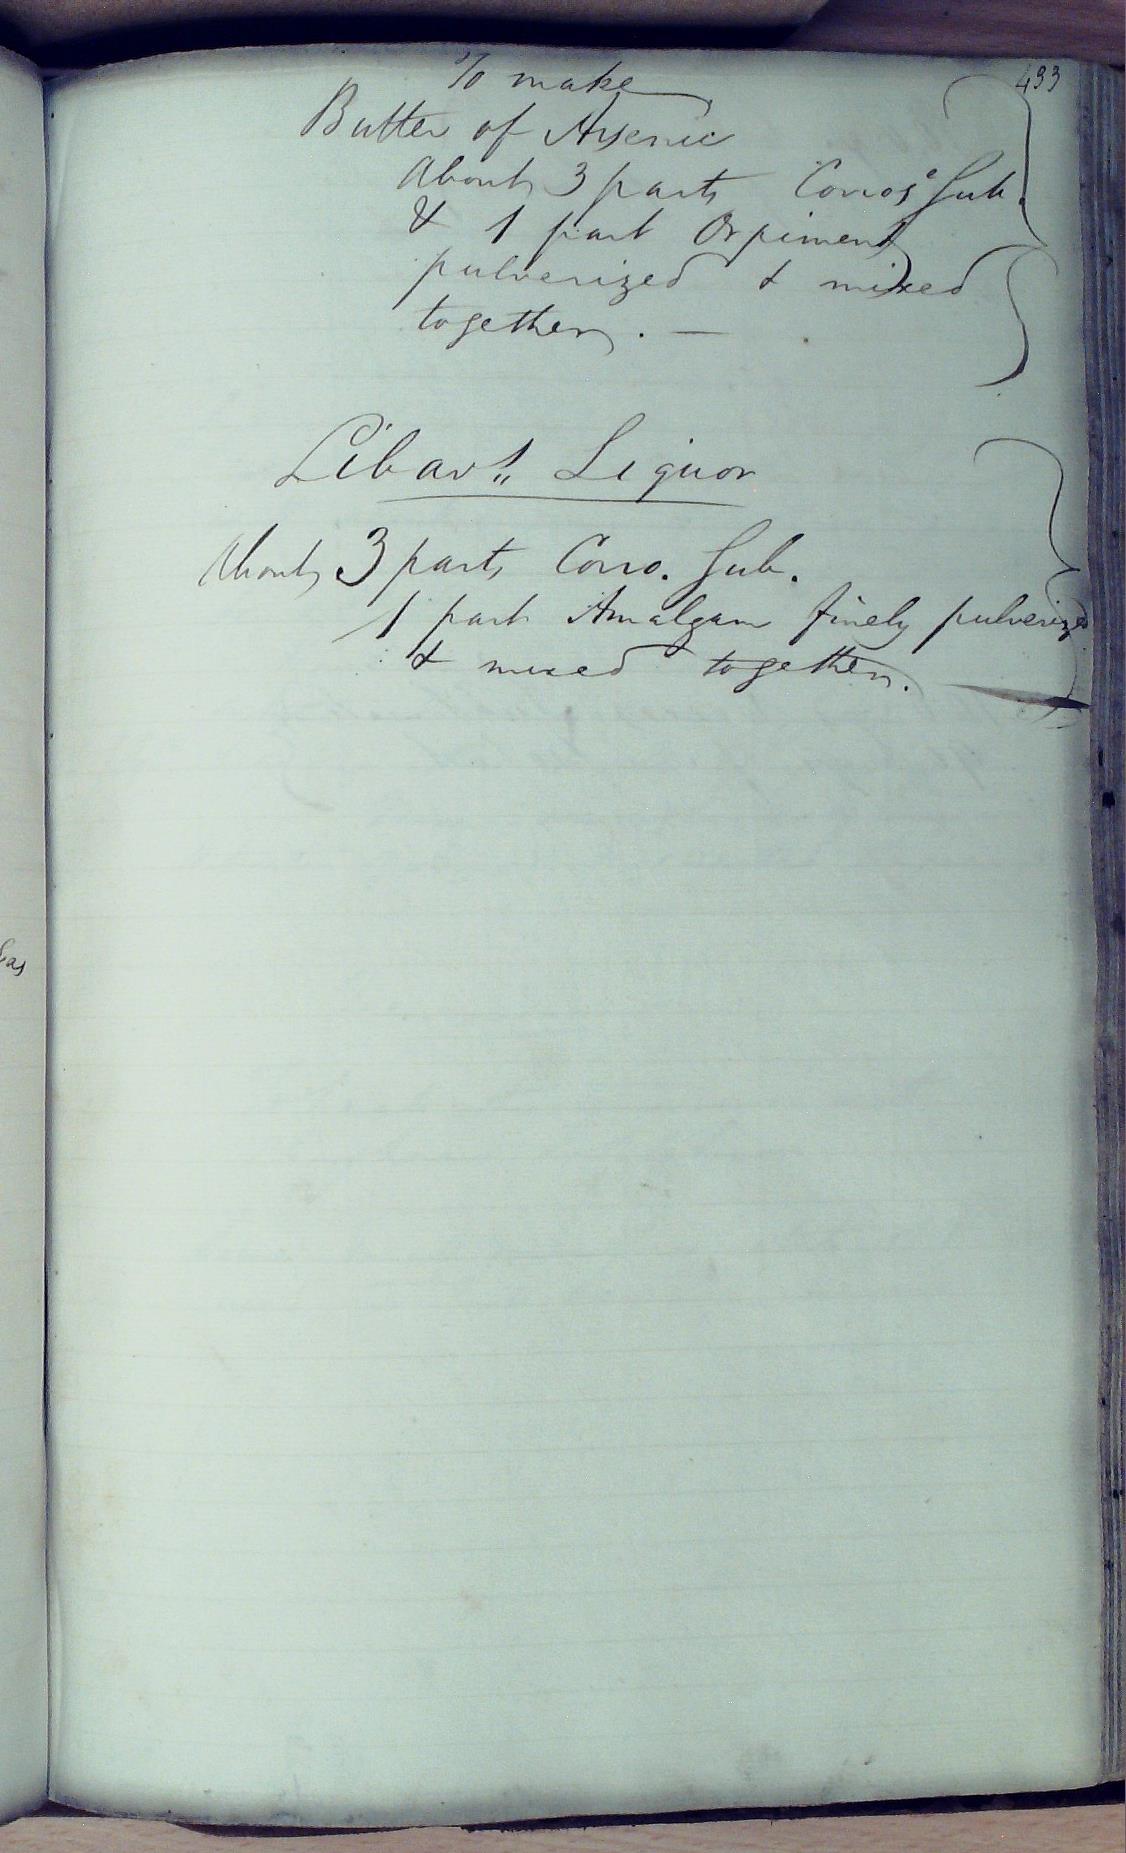 433
To make
Butter of Arsenic
About 3 parts Corros^e Sub.
& 1 part Orpiment
pulverized & mixed
together. —
Libav^s Liquor
About 3 parts Corro. Sub.
1 part Amalgam finely pulverized
& mixed together.